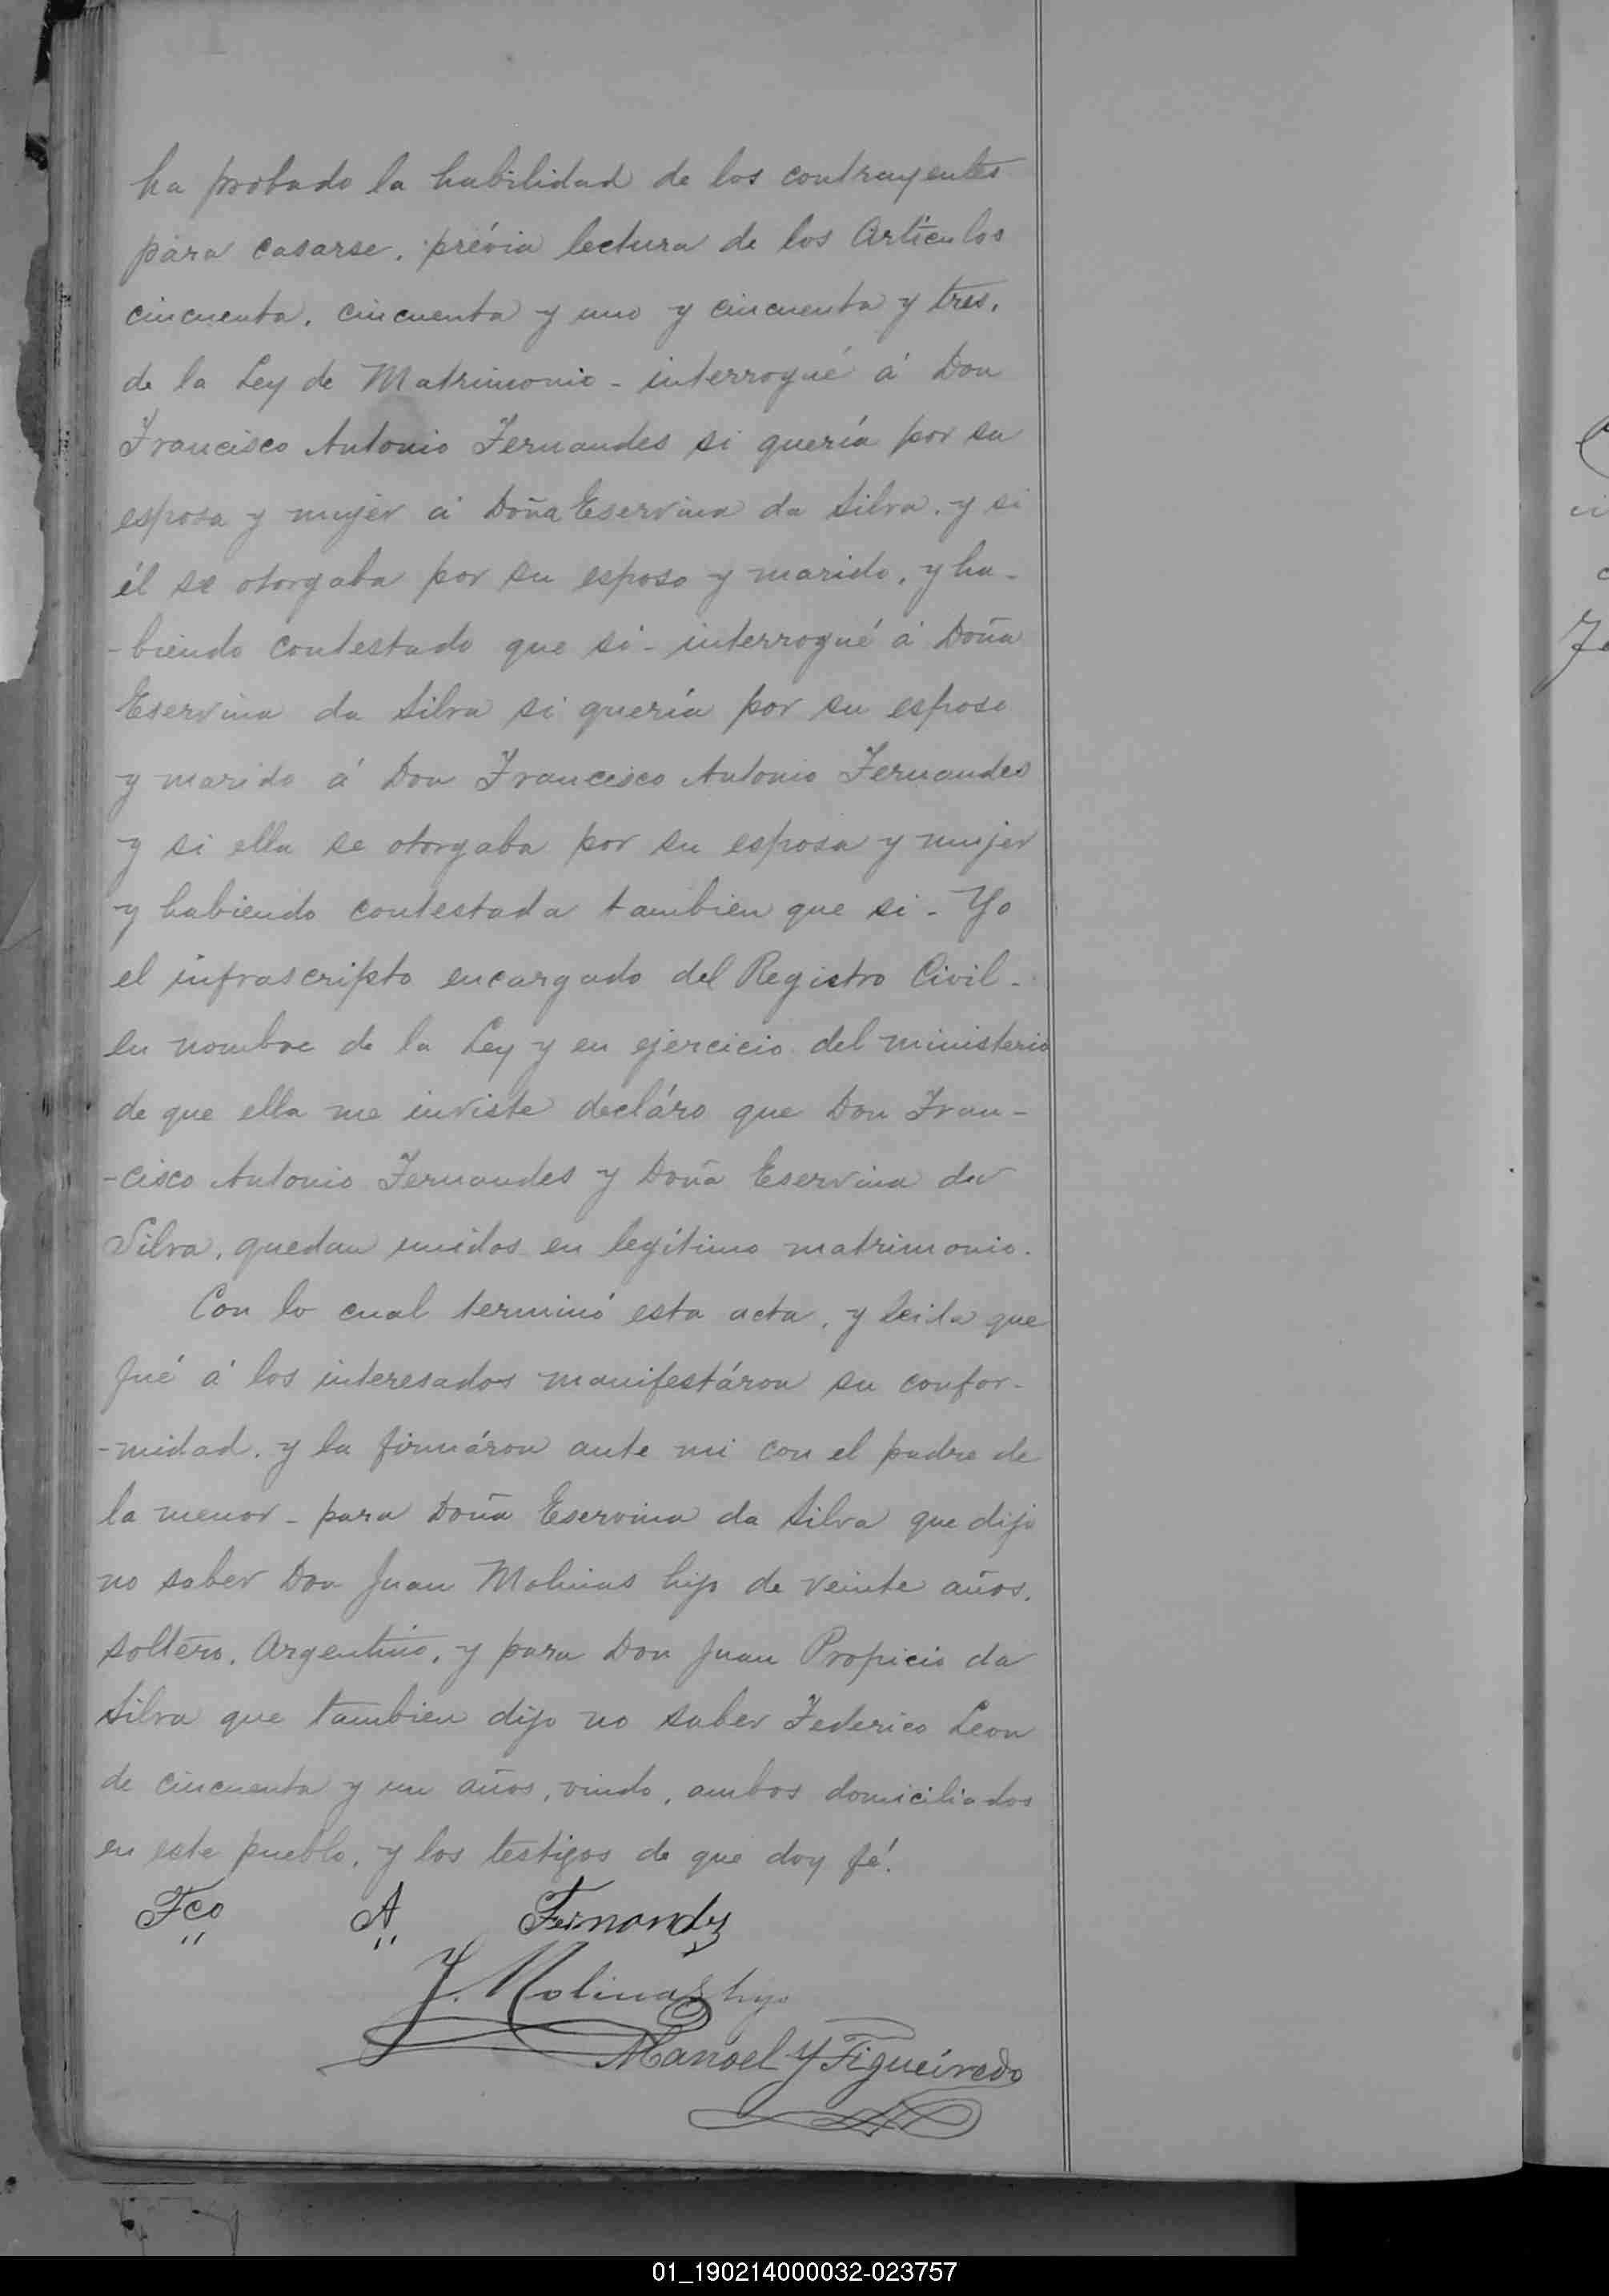 ha probado la habilidad de los contrayentes
para casarse, prévia lectura de los Artículos
cincuenta, cincuenta y uno y cincuenta y tres,
de la Ley de Matrimonio - interrogué á Don
Francisco Antonio Fernandes si quería por su
esposa y mujer á Doña Eservina da Silva, y si
él se otorgaba por su esposo y marido, y ha-
-biendo contestado que si - interrogué á Doña
Eservina da Silva si quería por su esposo
y marido á Don Francisco Antonio Fernandes
y si ella se otorgaba por su esposa y mujer
y habiendo contestada tambien que si - Yo
el infrascripto encargado del Registro Civil -
en nombre de la Ley y en ejercicio del ministerio
de que ella me inviste decláro que Don Fran-
-cisco Antonio Fernandes y Doña Eservina da
Silva, quedan unidos en legítimo matrimonio.
Con lo cual terminó esta acta, y leida que
fué á los interesados manifestáron su confor-
-midad, y la firmáron ante mi con el padre de
la menor - para Doña Eservina da Silva que dijo
no saber Don Juan Molinas hijo de veinte años,
soltero, Argentino, y para Don Juan Propicio da
Silva que tambien dijo no saber Federico Leon
de cincuenta y un años, viudo, ambos domiciliados
en este pueblo, y los testigos de que doy fé.
Fco A Fernandz
J. Molinas hijo
Manoel Y Figueiredo
01_190214000032-023757